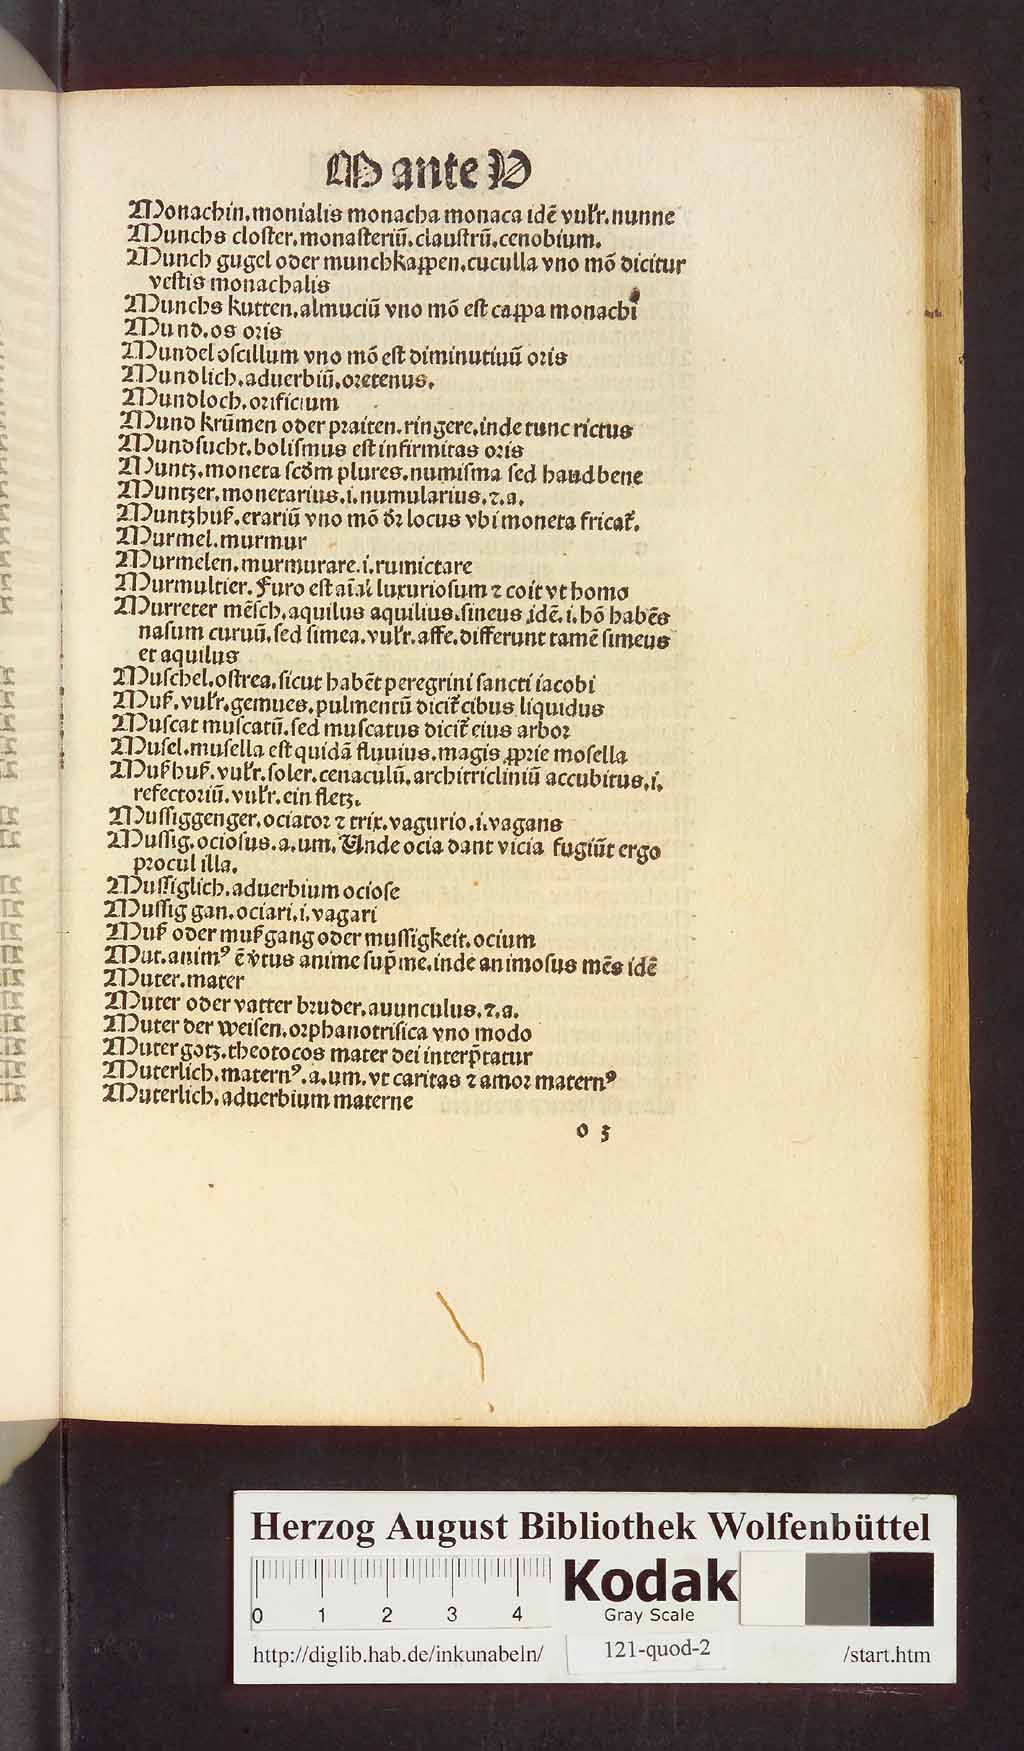 M ante V
Monachin.monialis monacha monaca idē vulr̄.nunne
Munchs closter.monasteriū.claustrū.cenobium.
Munch gugel oder munchkappen.cuculla vno mō dicitur
vestis monachalis
Munchs kutten.almuciū vno mō est cappa monachi
Mund.os oris
Mundel oscillum vno mō est diminutiuū oris
Mundlich.aduerbiū.oretenus.
Mundloch.orificium
Mund krūmen oder praiten.ringere.inde tunc rictus
Mundsucht.bolismus est infirmitas oris
Muntz.moneta scd̄m plures.numisma sed haud bene
Muntzer.monetarius.i.numularius.⁊.a.
Muntzhuß.erariū vno mō dr̄ locus vbi moneta fricat᷑.
Murmel.murmur
Murmelen.murmurare.i.rumictare
Murmultier. Furo est aīal luxuriosum ⁊ coit vt homo
Murreter mēsch.aquilus aquilius.simeus idē.i.hō habēs
nasum curuū.sed simea.vulr̄.affe.differunt tamē simeus
et aquilus
Muschel.ostrea.sicut habēt peregrini sancti iacobi
Muß.vulr̄.gemues.pulmentū dicit᷑ cibus liquidus
Muscat muscatū.sed muscatus dicit᷑ eius arbor
Musel.musella est quidā fluuius.magis ꝓprie mosella
Mußhuß.vulr̄.soler.cenaculū.architricliniū accubitus.i.
refectoriū.vulr̄.ein fletz.
Mussiggenger.ociator ⁊ trix.vagurio.i.vagans
Mussig.ociosus.a.um.Unde ocia dant vicia fugiūt ergo
procul illa.
Mussiglich.aduerbium ociose
Mussig gan.ociari.i.vagari
Muß oder mußgang oder mussigkeit.ocium
Mut.animꝰ ē v̄tus anime sup̄me.inde animosus mēs idē
Muter.mater
Muter oder vatter bruder.auunculus.⁊.a.
Muter der weisen.orphanotrifica vno modo
Muter gotz.theotocos mater dei interp̄tatur
Muterlich.maternꝰ.a.um.vt caritas ⁊ amor maternꝰ
Muterlich.aduerbium materne
o 3
Herzog August Bibliothek Wolfenbüttel
0 1 2 3 4
Kodak
Gray Scale
http://diglib.hab.de/inkunabeln/ 121-quod-2 /start.htm